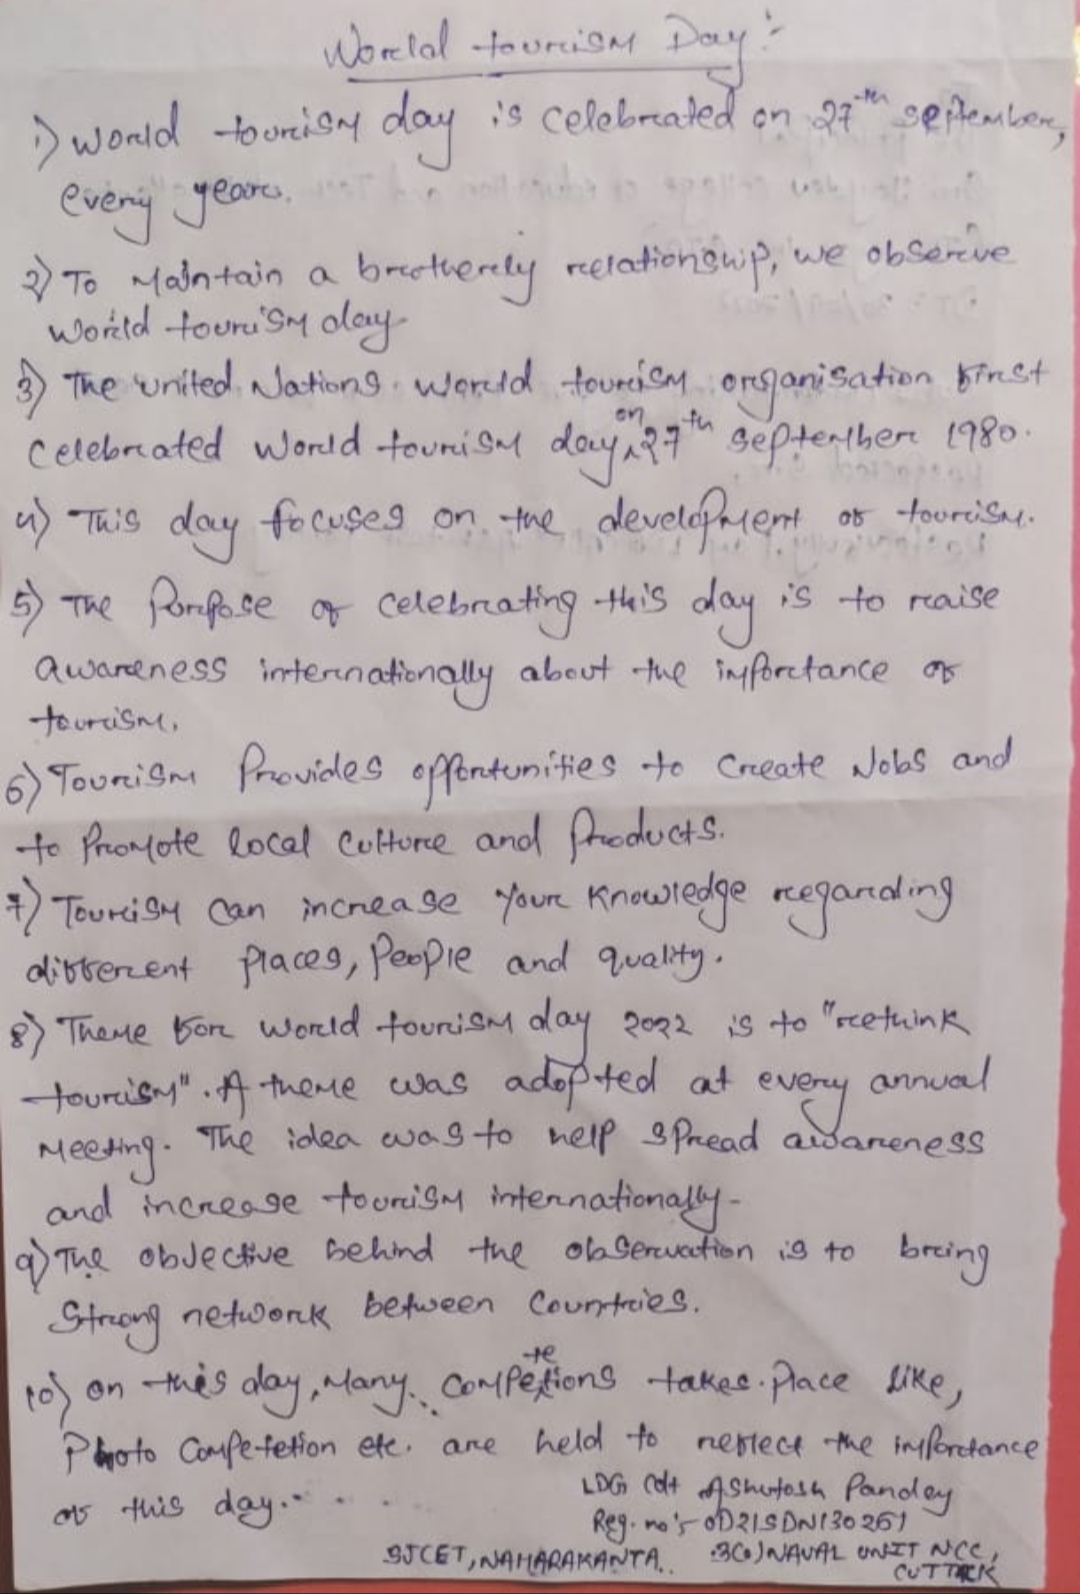 World tourism Day :-
1) World tourism day is celebrated on 27th september,
every year.
2) To Maintain a brotherly relationship, we observe
world tourism day.
3) The united Nations world tourism organisation first
celebrated world tourism day on 27th september 1980.
4) This day focuses on the development of tourism.
5) The Porpose of celebrating this day is to raise
awareness internationally about the importance of
tourism.
6) Tourism Provides opportunities to create Jobs and
to Promote local culture and products.
7) Tourism can increase your knowledge regarding
different places, people and quality.
8) Theme for world tourism day 2022 is to "rethink
tourism". A theme was adopted at every annual
Meeting. The idea was to help spread awareness
and increase tourism internationally.
9) The objective behind the observation is to bring
strong network between countries.
10) on this day, Many competetions takes place like,
Photo competetion etc. are held to reflect the importance
of this day...
LDG Cdt Ashutosh Pandey
Reg. no:- OD21SDN130261
SJCET, NAHARAKANTA. 3(O) NAVAL UNIT NCC,
CUTTACK